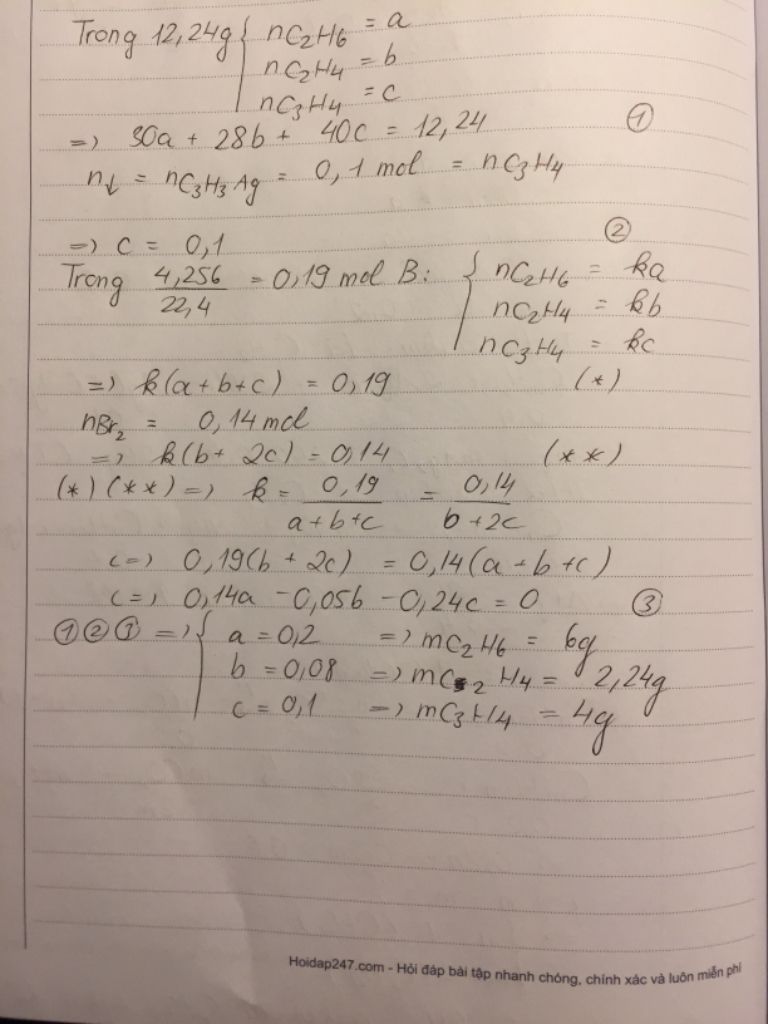 Trong 12,24g { nC2H6 = a
nC2H4 = b
nC3H4 = c
=> 30a + 28b + 40c = 12,24 ①
n↓ = nC3H3Ag = 0,1 mol = nC3H4
=> c = 0,1 ②
Trong 4,256/22,4 = 0,19 mol B: { nC2H6 = ka
nC2H4 = kb
nC3H4 = kc
=> k(a+b+c) = 0,19 (*)
nBr2 = 0,14 mol
=> k(b+ 2c) = 0,14 (**)
(*) (**) => k = 0,19/a+b+c = 0,14/b+2c
<=> 0,19(b + 2c) = 0,14(a+b+c)
<=> 0,14a -0,05b -0,24c = 0 ③
①②③ => { a = 0,2 => mC2H6 = 6g
b = 0,08 => mC2H4 = 2,24g
c = 0,1 => mC3H4 = 4g
Hoidap247.com - Hỏi đáp bài tập nhanh chóng, chính xác và luôn miễn phí